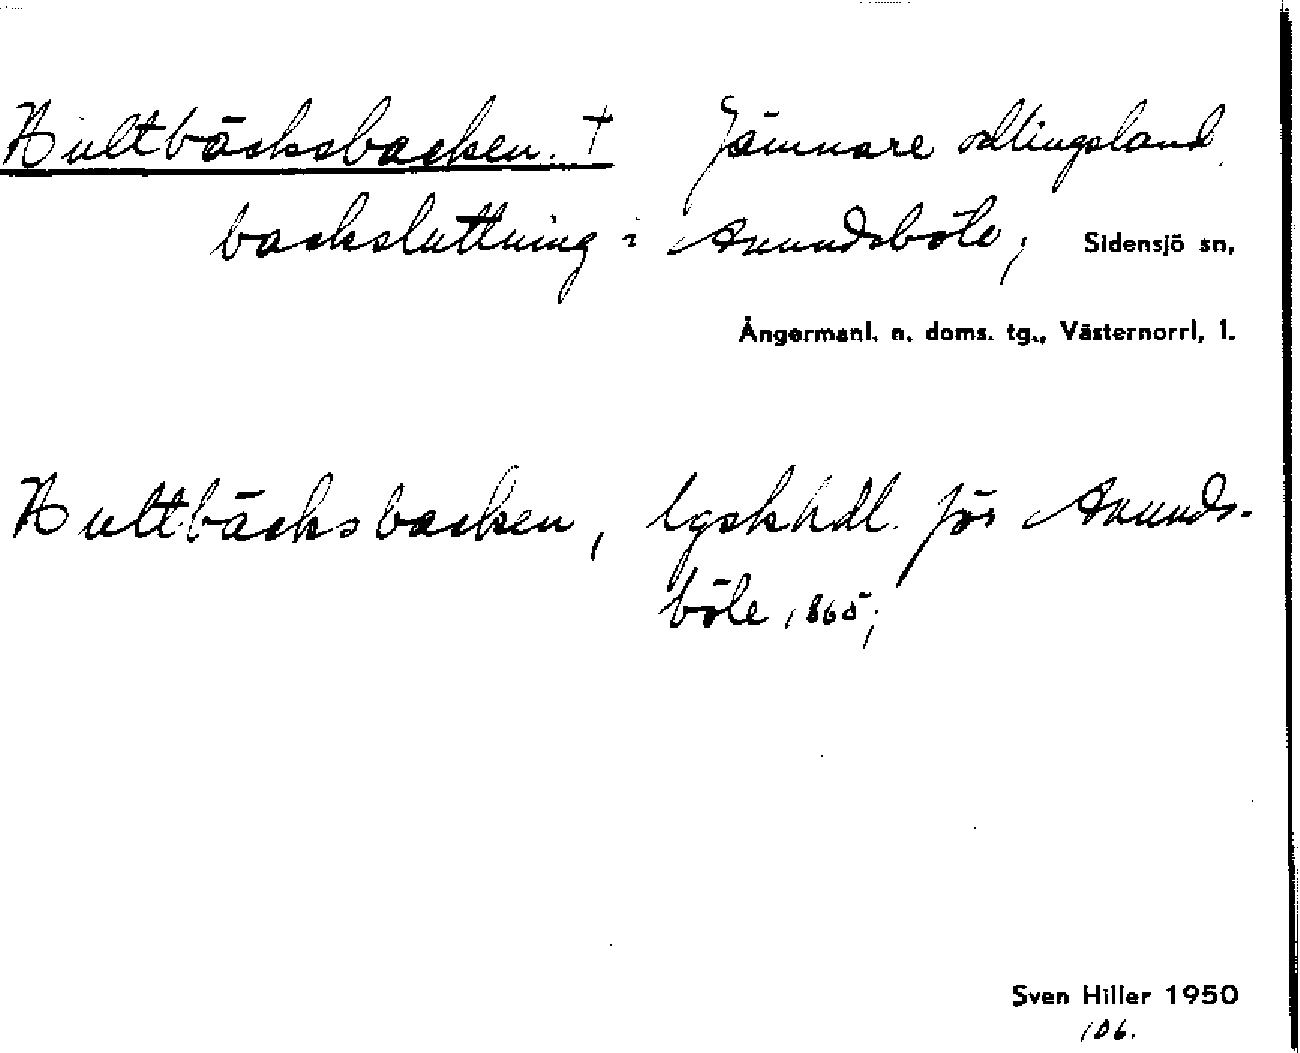 Hultbäcksbacken. † Jämnare odlingsland
backsluttning i Anundsböle, Sidensjö sn,
Ångermanl. n. doms. tg., Västernorrl, l.
Hultbäcksbacken, lgskhdl. för Anunds-
böle 1865;
Sven Hiller 1950
106.